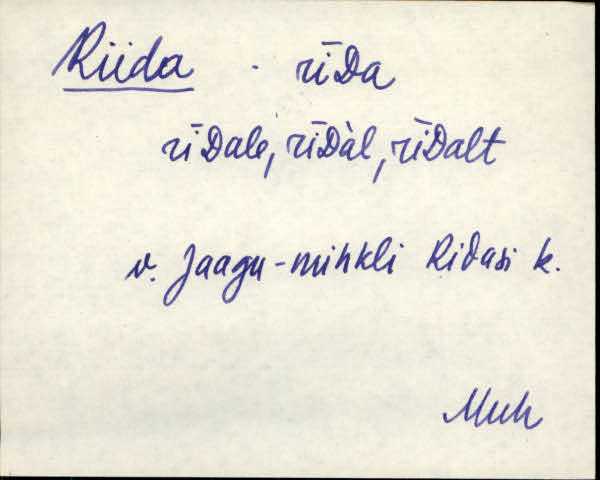 Riida . rīDa
rīDale, rīDàl, rīDalt
v. Jaagu-mihkli Ridasi k.
Muh